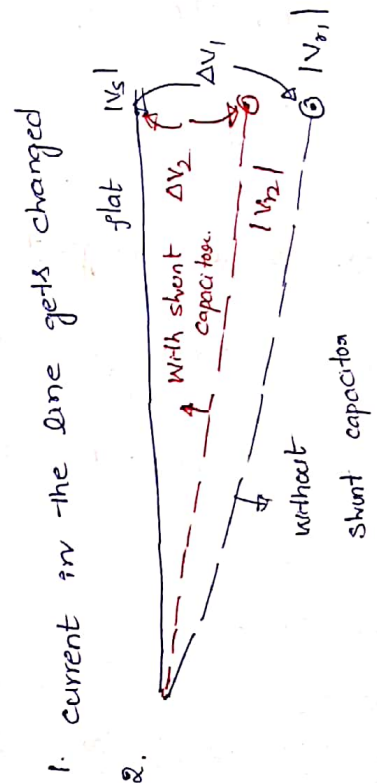 1. current in the line gets changed
2.
flat |Vs|
With shunt
capacitor.
ΔV2
ΔV1
|Vr2|
|Vr1|
without
shunt capacitor